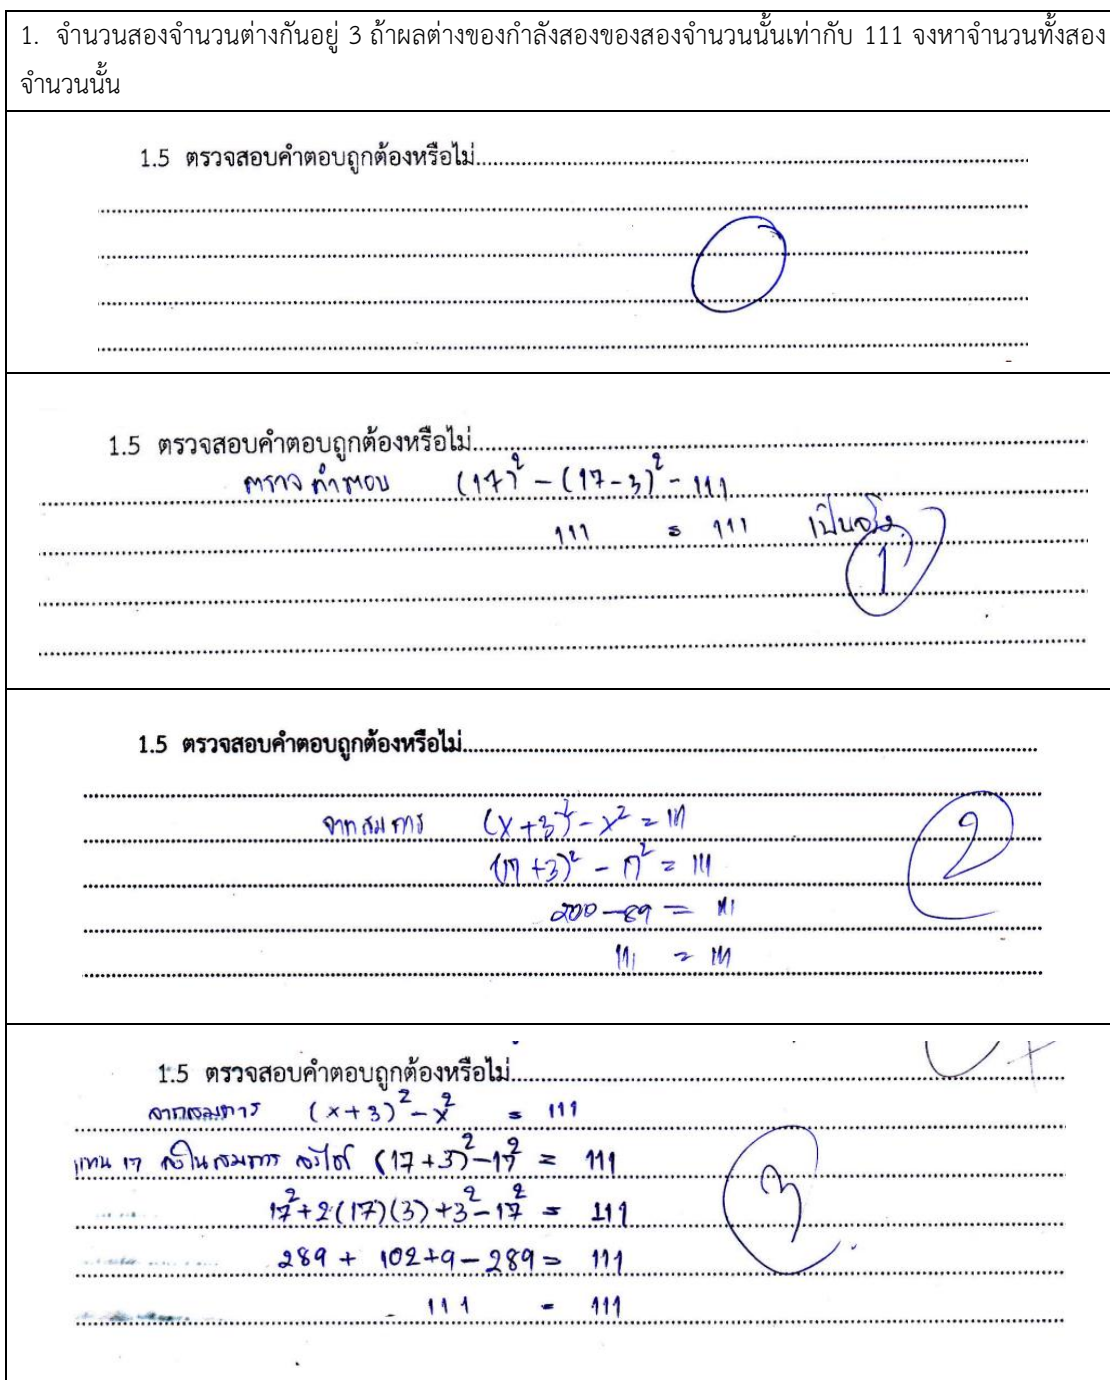 1. จำนวนสองจำนวนต่างกันอยู่ 3 ถ้าผลต่างของกำลังสองของสองจำนวนนั้นเท่ากับ 111 จงหาจำนวนทั้งสอง
จำนวนนั้น
1.5 ตรวจสอบคำตอบถูกต้องหรือไม่
0
1.5 ตรวจสอบคำตอบถูกต้องหรือไม่
ตรวจคำตอบ (17)² - (17-3)² - 111
111 = 111 เป็นจริง
1
1.5 ตรวจสอบคำตอบถูกต้องหรือไม่
จากสมการ (x+3)² - x² = 111
(17+3)² - 17² = 111
200 - 89 = 111
111 = 111
2
1.5 ตรวจสอบคำตอบถูกต้องหรือไม่
จากสมการ (x+3)² - x² = 111
แทน 17 ลงในสมการ จะได้ (17+3)² - 17² = 111
17² + 2(17)(3) + 3² - 17² = 111
289 + 102 + 9 - 289 = 111
111 = 111
3